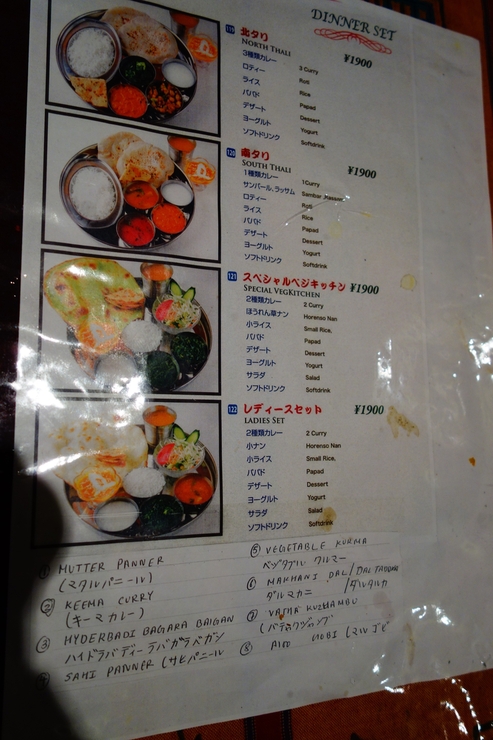 DINNER SET
119 北タリ
NORTH THALI ¥1900
3種類カレー 3 Curry
ロティー Roti
ライス Rice
パパド Papad
デザート Dessert
ヨーグルト Yogurt
ソフトドリンク Softdrink
120 南タリ
SOUTH THALI ¥1900
1種類カレー 1Curry
サンバール,ラッサム Sambar
ロティー Roti
ライス Rice
パパド Papad
デザート Dessert
ヨーグルト Yogurt
ソフトドリンク Softdrink
121 スペシャルベジキッチン ¥1900
SPECIAL VEGKITCHEN
2種類カレー 2 Curry
ほうれん草ナン Horenso Nan
小ライス Small Rice,
パパド Papad
デザート Dessert
ヨーグルト Yogurt
サラダ Salad
ソフトドリンク Softdrink
122 レディースセット ¥1900
LADIES SET
2種類カレー 2 Curry
小ナン Horenso Nan
小ライス Small Rice,
パパド Papad
デザート Dessert
ヨーグルト Yogurt
サラダ Salad
ソフトドリンク Softdrink
① MUTTER PANNER
(マタルパニール)
② KEEMA CURRY
(キーマカレー)
③ HYDERBADI BAGARA BAIGAN
ハイドラバディーラバガラベガン
④ SAHI PANNER (サヒパニール
⑤ VEGETABLE KURMA
ベジタブル クルマー
⑥ MAKHANI DAL/DAL TADKA
ダルマカニ /ダルタルカ
⑦ KUZHAMBU
⑧ GOBI